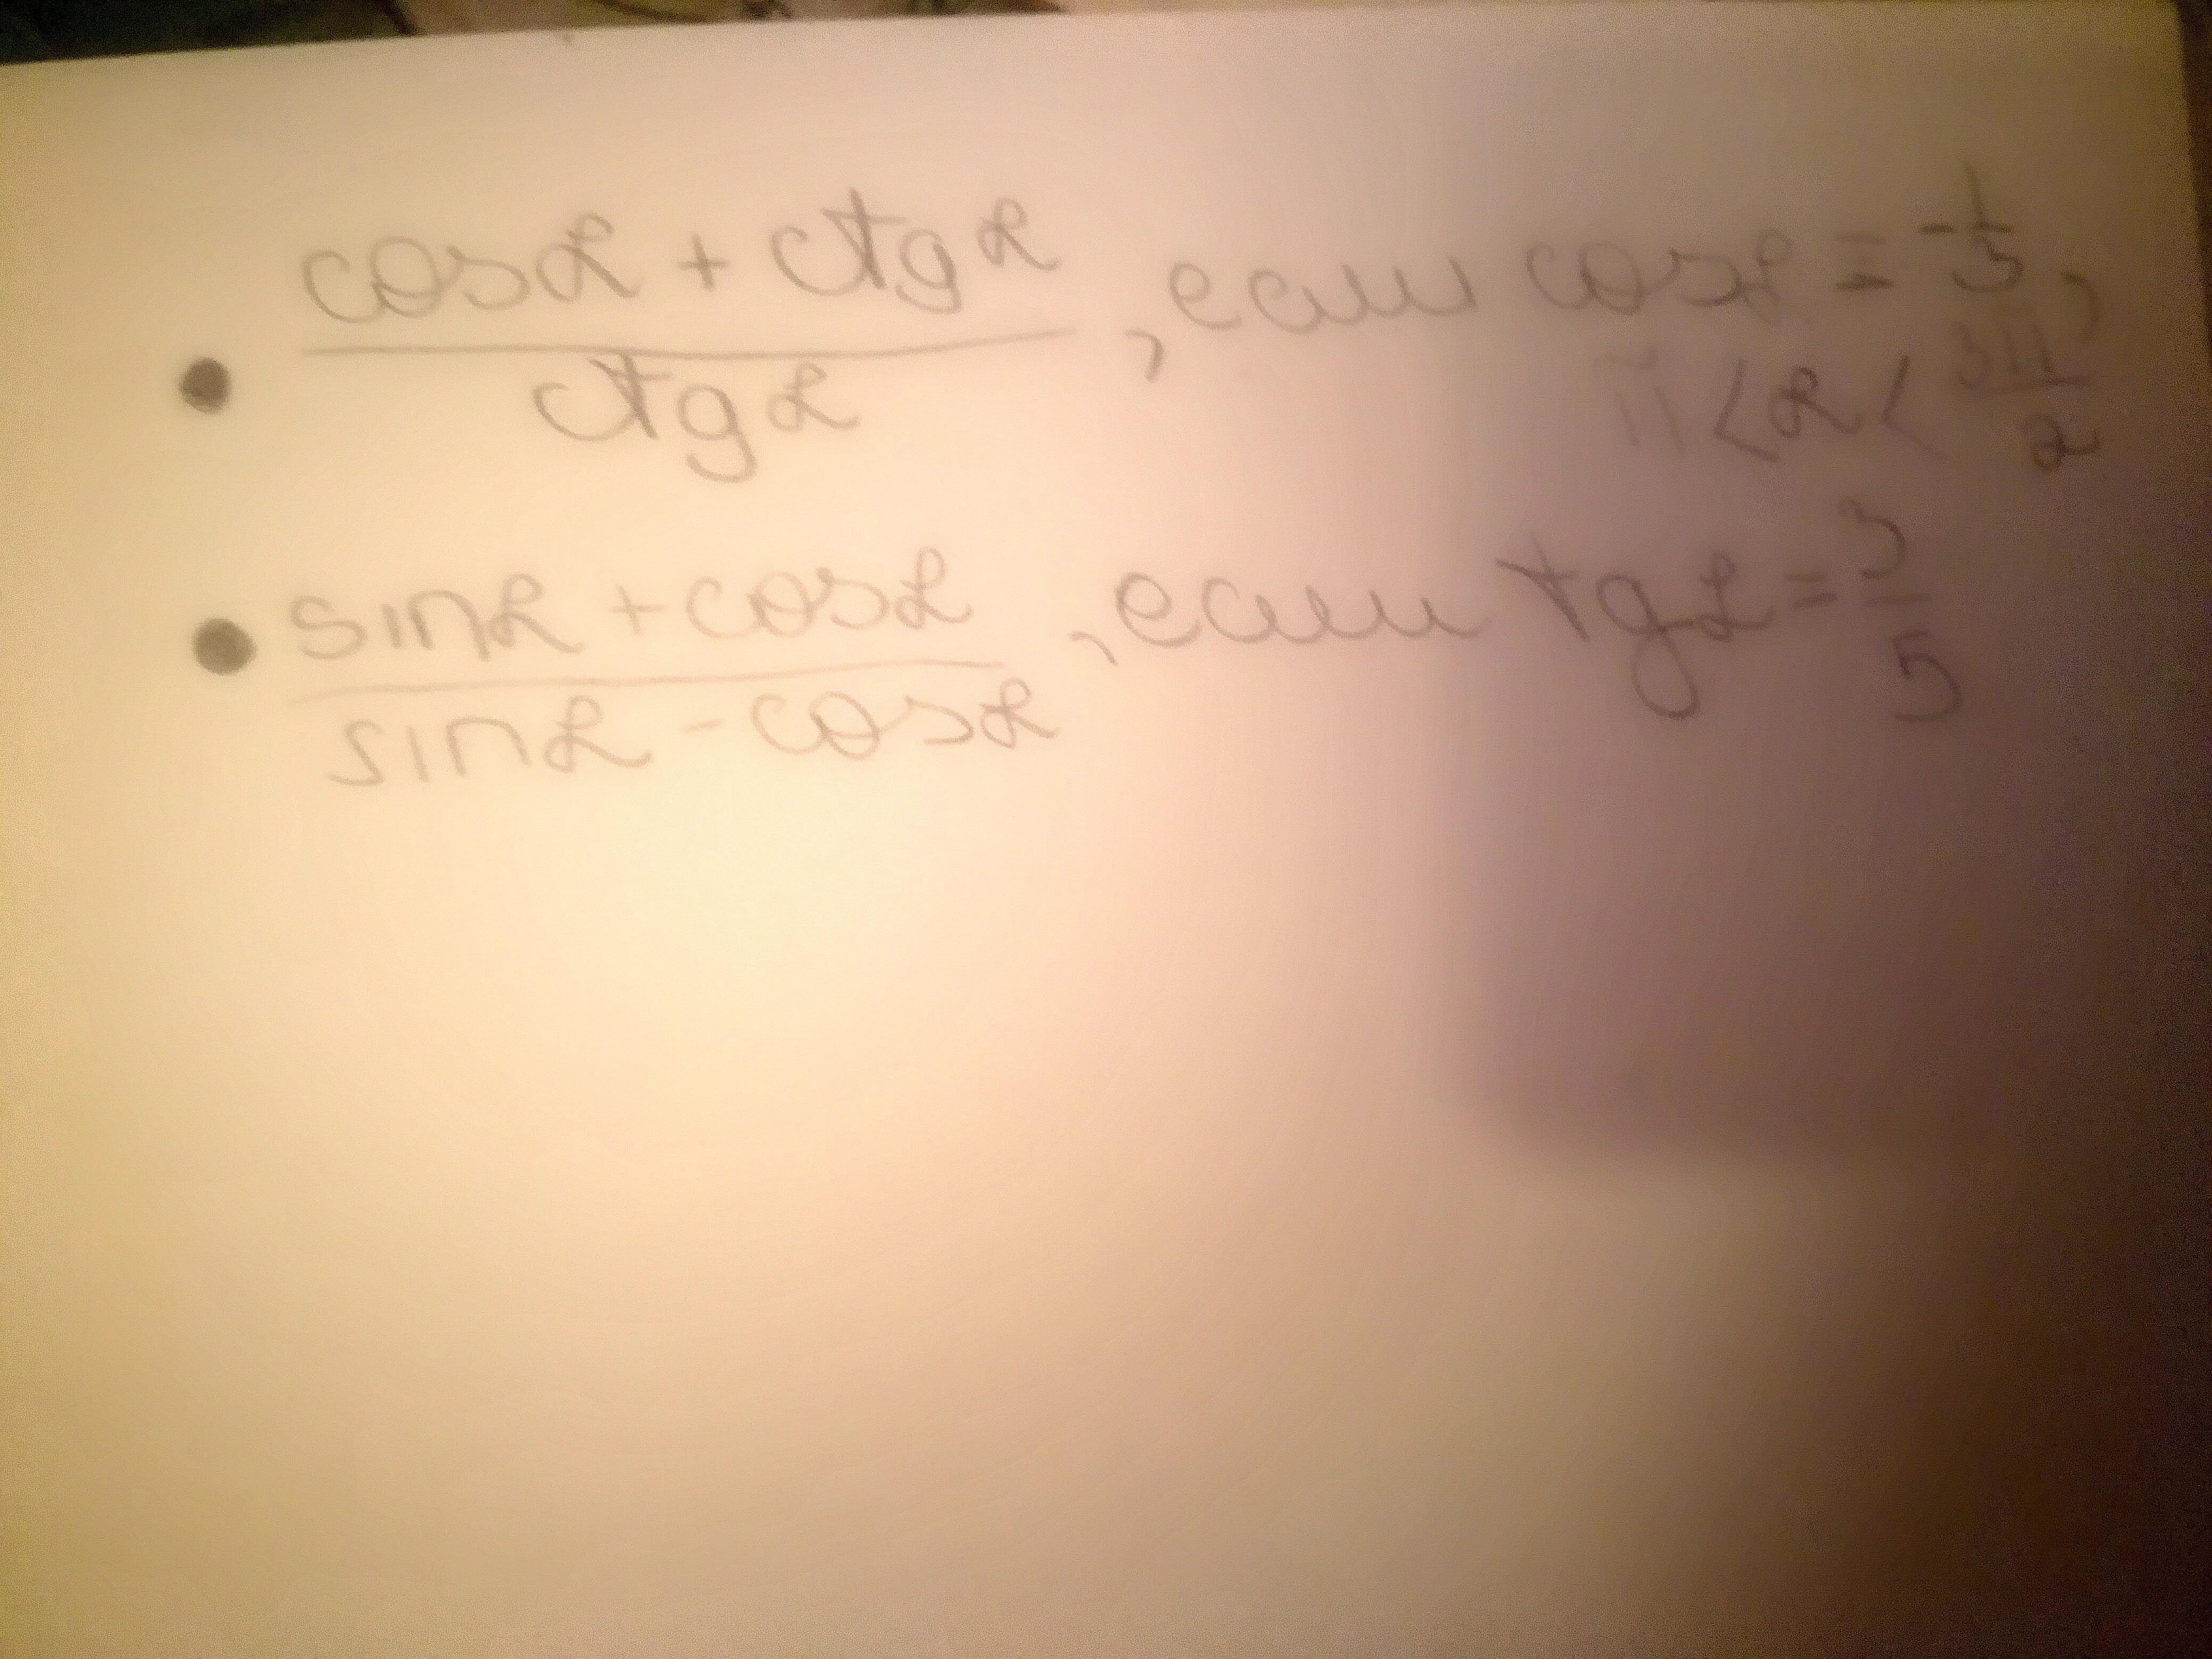 • (cosα + ctgα)/(ctgα), если cosα = -1/3,
π < α < 3π/2
• (sinα + cosα)/(sinα - cosα), если tgα = 3/5